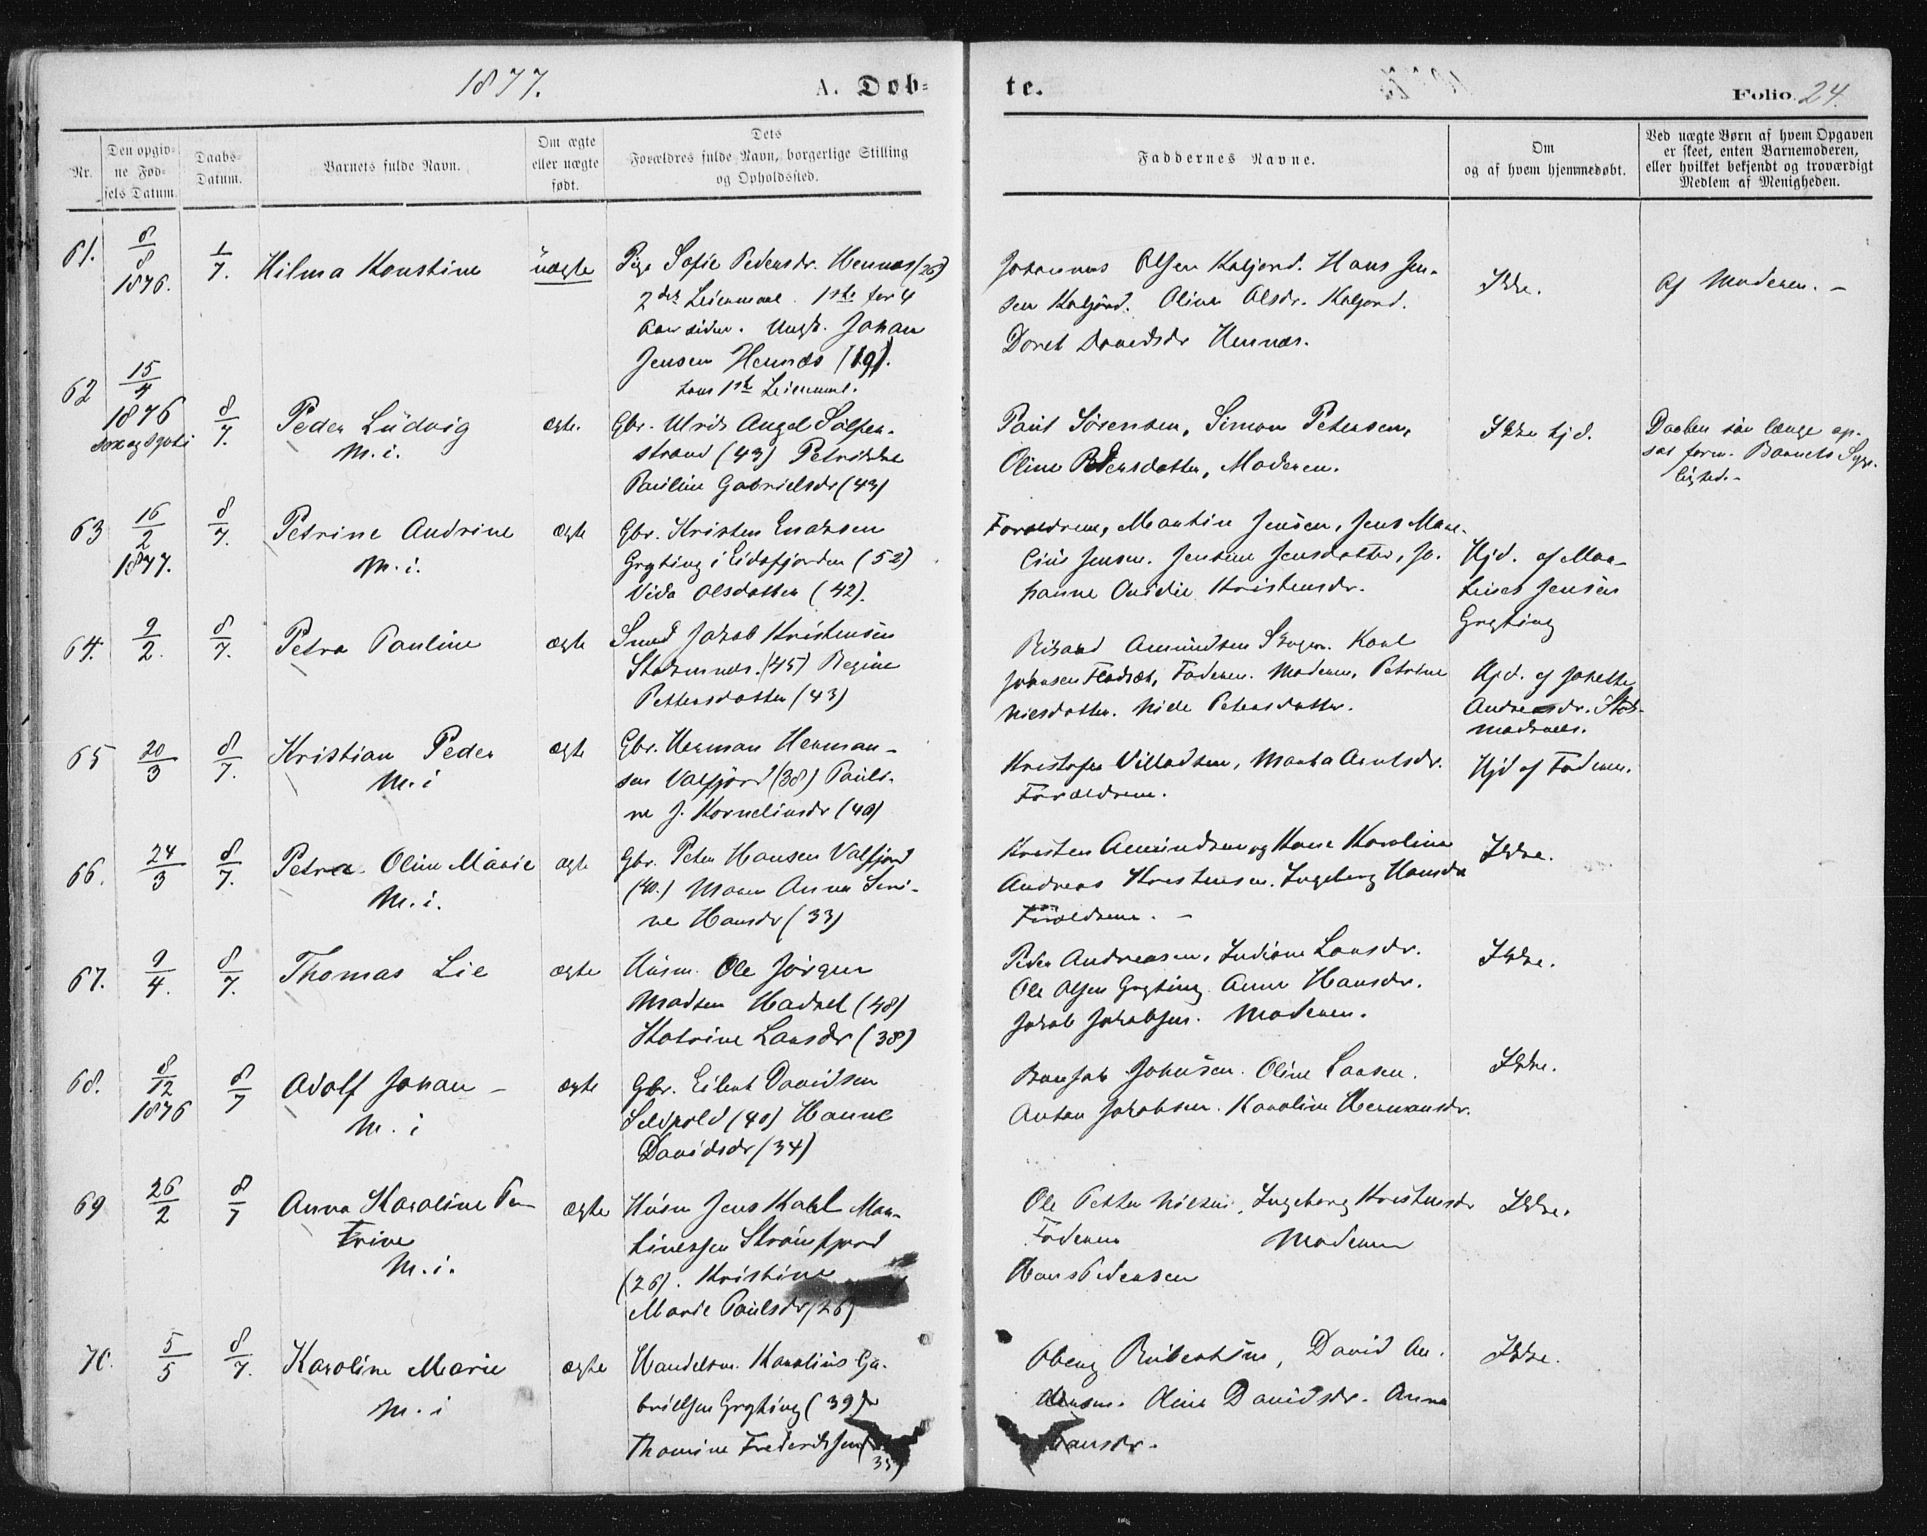 1877.
A. Døb-
te.
Folio 24.
Nr.
Den opgiv-
ne Fød-
sels Datum.
Daabs-
Datum.
Barnets fulde Navn.
Om ægte
eller uægte
født.
Dets
Forældres fulde Navn, borgerlige Stilling
og Opholdssted.
Faddernes Navne.
Om
og af hvem hjemmedøbt.
Ved uægte Børn af hvem Opgaven
er skeet, enten Barnemoderen,
eller hvilket bekjendt og troværdigt
Medlem af Menigheden.
61.
8/8
1876.
1/7.
Hilma Konstine
uægte
Pige Sofie Pedersdr. Hennæs (26)
2det Leiermaal. 1ste for 4
Aar siden. Ungk. Johan
Jensen Hennæs (19).
hans 1ste Leiermaal.
Johannes Olsen Kaljord. Hans Jen-
sen Kaljord. Oline Olsdr. Kaljord.
Doret Davidsdr Hennæs.
Ikke.
Af Moderen. -
62
15/4
1876
8/7.
Peder Ludvig
M. i.
ægte.
Gbr. Ulrik Angel Sølfer-
strand (43) Petrikke
Pauline Gabrielsdr (43)
Paul Sørensen, Simon Petersen,
Oline Pedersdatter, Moderen.
Ikke hjd.
Daaben saa længe op-
sat form. Barnets Syge-
lighed. -
63
16/2
1877.
8/7.
Petrine Andrine
M. i.
ægte
Gbr. Kristen Enoksen
Grytting i Eidsfjorden (52)
Vida Olsdatter (42).
Forældrene, Martin Jensen, Jens Mare-
lius Jensen. Jensine Jensdatter, Jo-
hanne Kristensdr.
Hjd. af Mar-
tines Jensen
Grytting
64.
9/2.
8/7.
Petra Pauline
ægte
Smed Jakob Kristensen
Stokmarnæs. (45) Regine
Pettersdatter (43)
Rikard Amundsen Skagen. Karl
Johnsen Fladsæt, Faderen. Moderen, Petrine
Nielsdatter. Petersdatter.
Hjd. af Johette
Andreasdr. Stok-
marknes.
65
20/3
8/7.
Kristian Peder
M. i
ægte
Gbr. Herman Herman-
sen Valfjord (38) Pauli-
ne J. Korneliusdr (40)
Kristofer Villadsen, Marta Arntsdr.
Forældrene.
Hjd af Faderen.
66.
24/3
8/7.
Petra Oline Marie
M. i.
ægte
Gbr. Peter Hansen Valfjord
(40.) Maren Anna Seri-
ne Hansdr (33)
Kristen Amundsen og Kone Karoline
Andreas Kristensen. Ingeborg Hansdr
Forældrene. -
Ikke.
67.
9/4.
8/7.
Thomas Lie
ægte
Husm. Ole Jørgen
Madsen Hadsel (48)
Katrine Larsdr (38)
Peder Andreasen, Indiane Larsdr.
Ole Olsen Grytting. Anne Hansdr.
Jakob Jakobsen. Moderen.
Ikke.
68.
8/12
1876
8/7
Adolf Johan -
M. i
ægte
Gbr. Eilert Davidsen
Seldpold (40) Hanne
Davidsdr (34)
Johnsen. Oline Larsen.
Anton Jakobsen. Karoline Hermansdr.
Ikke.
69
26/2
8/7
Anna Karoline Pe-
trine
M. i.
ægte
Husm Jens Karl Mar-
tinessen Strømfjord
(26). Kristine
Marie Paulsdr (26)
Ole Petter Nielsen, Ingeborg Kristensdr
Faderen Moderen
Hans Pedersen
Ikke.
70.
5/5
8/7.
Karoline Marie
M. i
ægte
Handelsm. Karolius Ga-
brielsen Grytting (39)
Thomine Frederiksen (35)
David An-
densen. Oline Davidsdr. Anna
Hansdr.
Ikke.